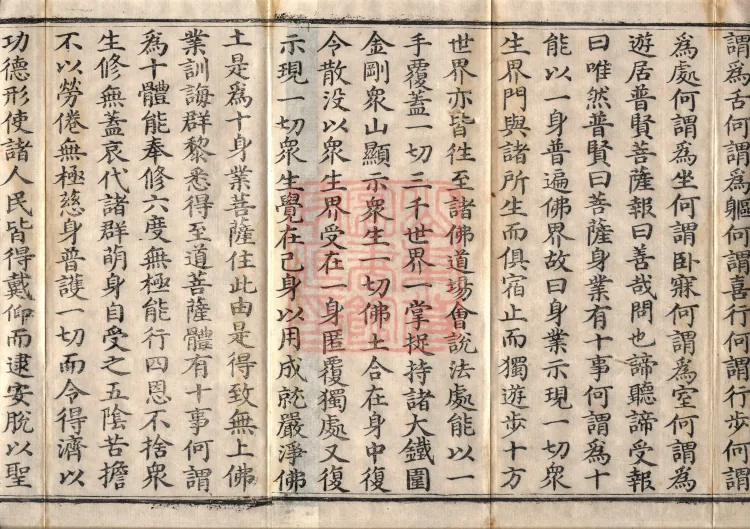 謂爲舌何謂爲軀何謂喜行何謂行步何謂
爲處何謂爲坐何謂卧寐何謂爲室何謂爲
遊居普賢菩薩報曰善哉問也諦聽諦受報
曰唯然普賢曰菩薩身業有十事何謂爲十
能以一身普遍佛界故曰身業示現一切衆
生界門與諸所生而俱宿止而獨遊步十方
世界亦皆往至諸佛道場會說法處能以一
手覆蓋一切三千世界一掌捉持諸大鐵圍
金剛衆山顯示衆生一切佛土合在身中復
令散没以衆生界受在一身匿覆獨處又復
示現一切衆生覺在己身以用成就嚴淨佛
土是爲十身業菩薩住此由是得致無上佛
業訓誨群黎悉得至道菩薩體有十事何謂
爲十體能奉修六度無極能行四恩不捨衆
生修無蓋哀代諸群萌身自受之五陰苦擔
不以勞倦無極慈身普護一切而令得濟以
功德形使諸人民皆得戴仰而逮安脫以聖